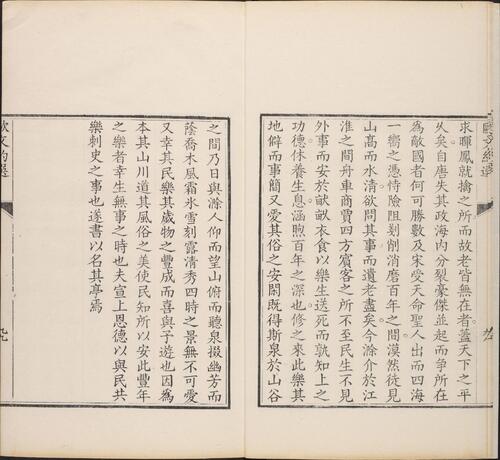 求暉鳳就擒之所而故老皆無在者蓋天下之平
久矣自唐失其政海內分裂豪傑並起而爭所在
為敵國者何可勝數及宋受天命聖人出而四海
一嚮之憑恃險阻剗削消磨百年之間漠然徒見
山高而水清欲問其事而遺老盡矣今滁介於江
淮之間舟車商賈四方賓客之所不至民生不見
外事而安於畎畝衣食以樂生送死而孰知上之
功德休養生息涵煦百年之深也修之來此樂其
地僻而事簡又愛其俗之安閑既得斯泉於山谷
之間乃日與滁人仰而望山俯而聽泉掇幽芳而
蔭喬木風霜冰雪刻露清秀四時之景無不可愛
又幸其民樂其歲物之豐成而喜與予遊也因為
本其山川道其風俗之美使民知所以安此豐年
之樂者幸生無事之時也夫宣上恩德以與民共
樂刺史之事也遂書以名其亭焉